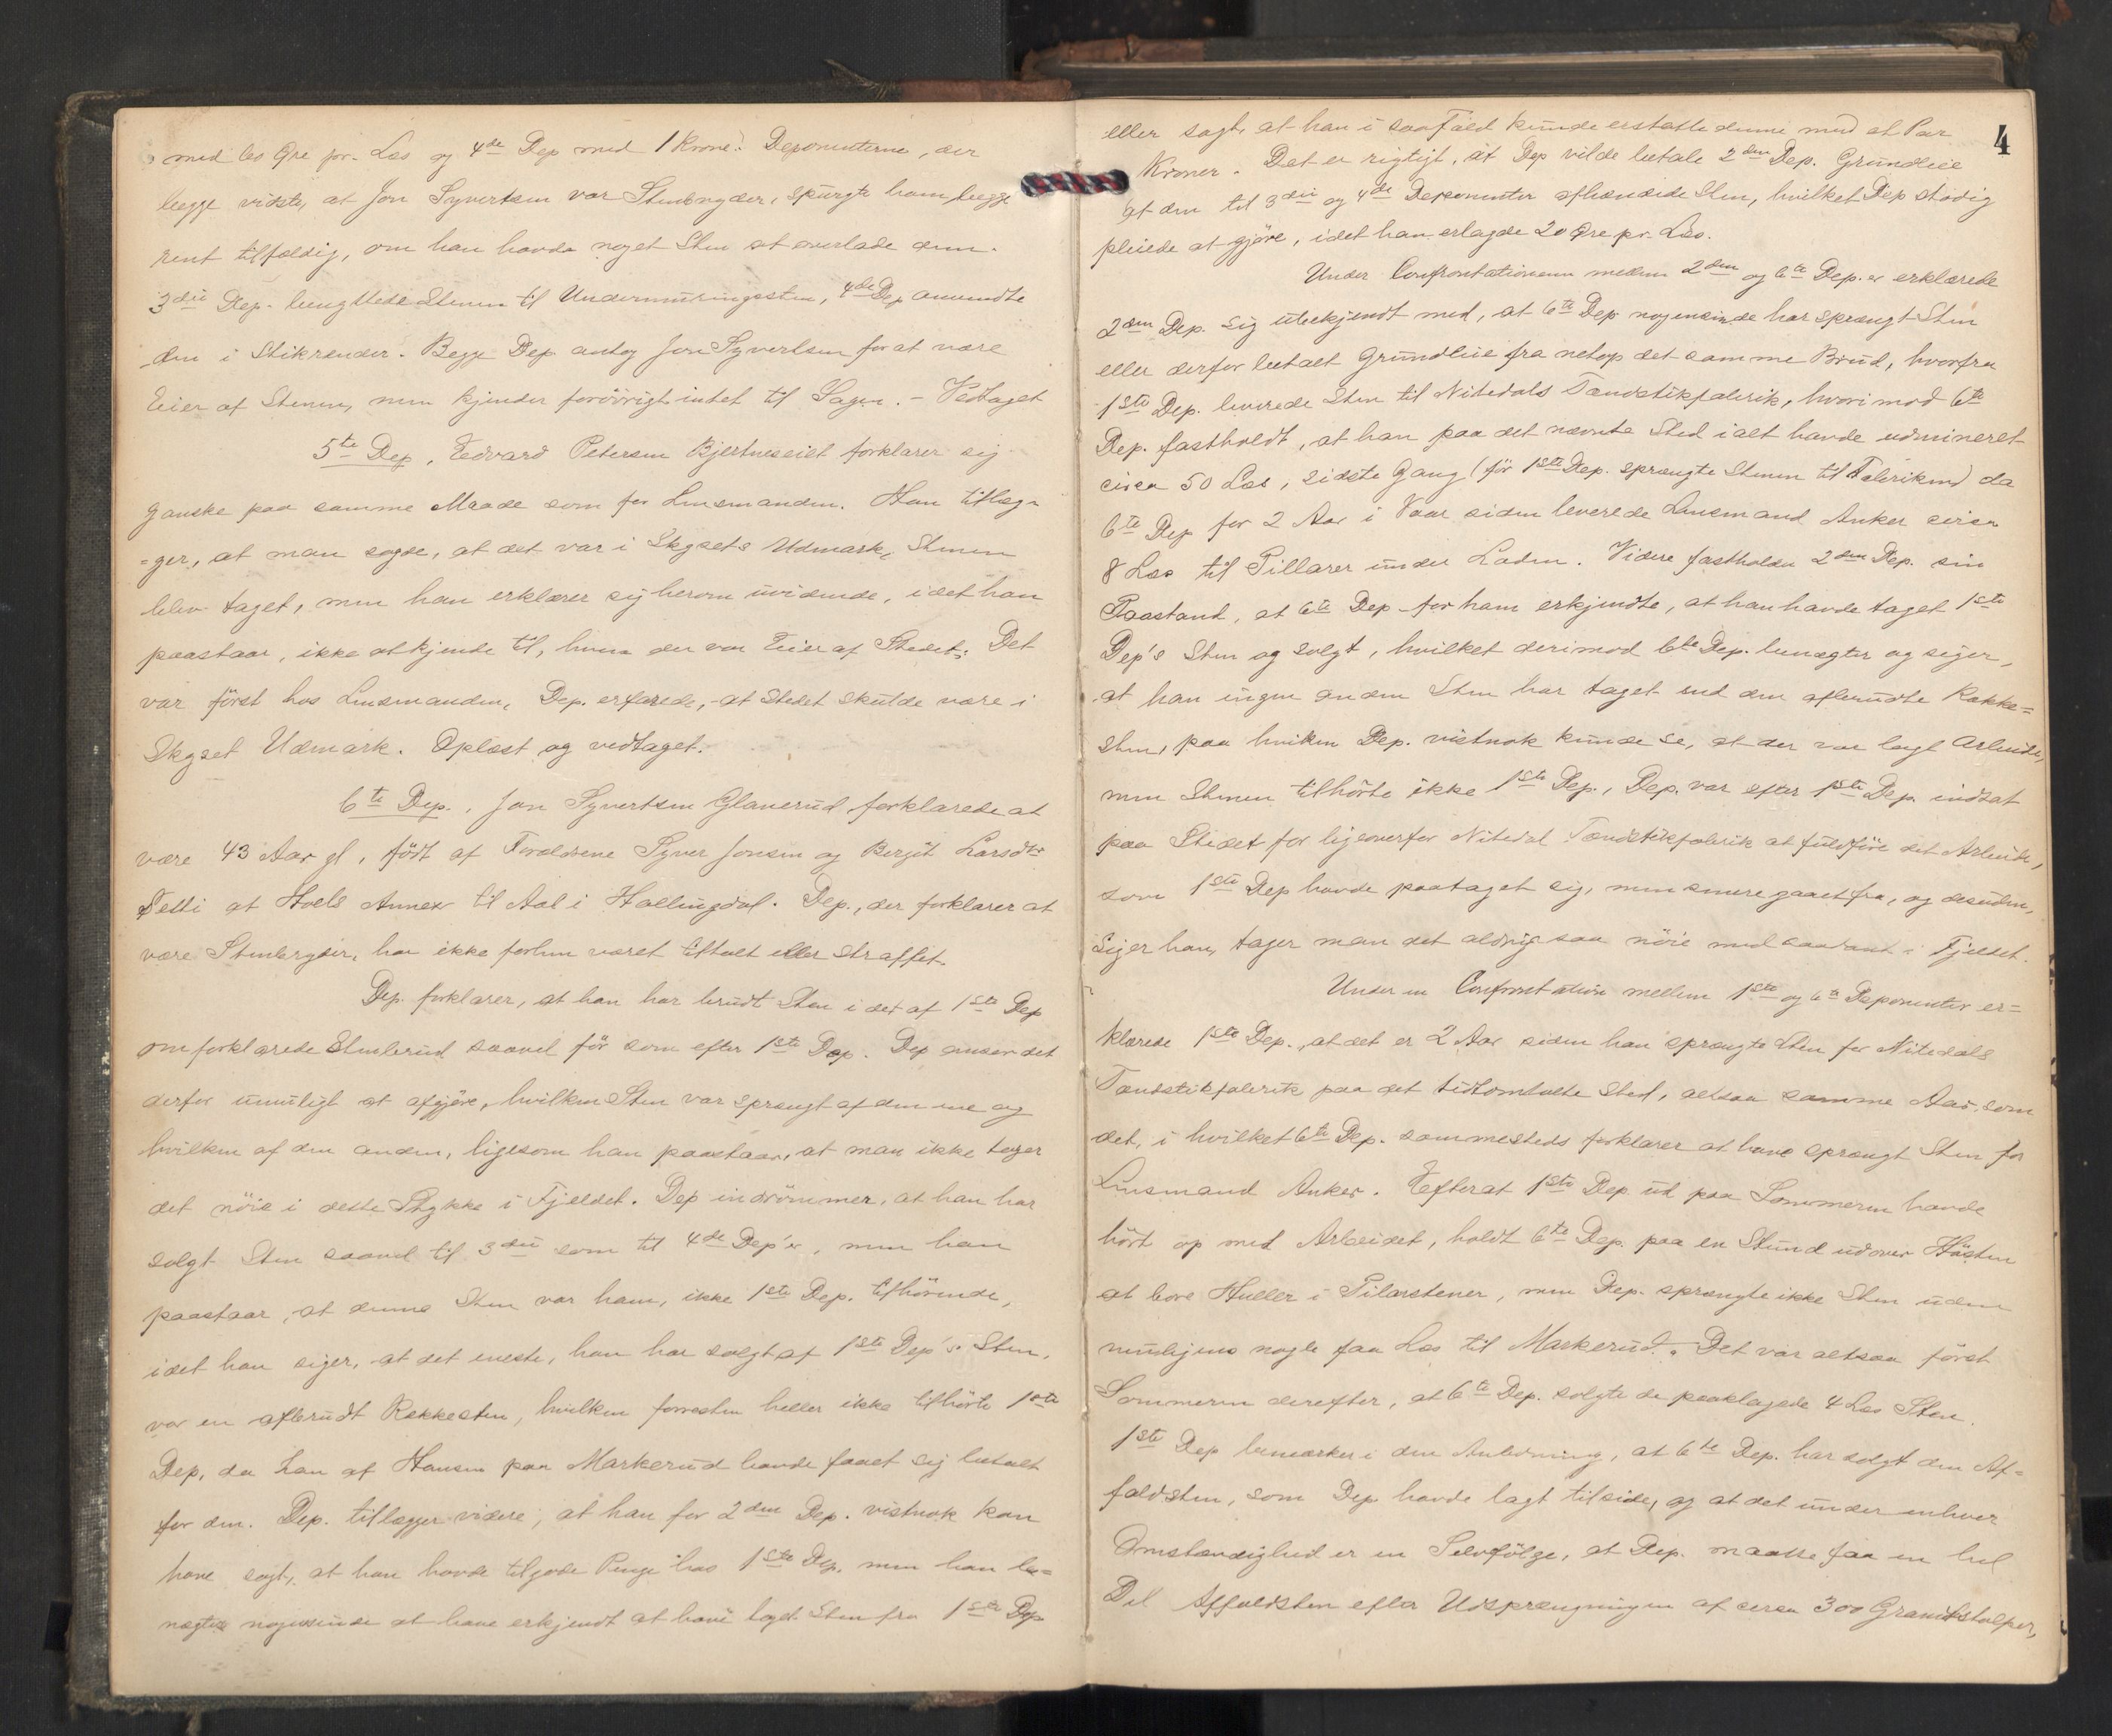 med 60 Øre pr. Læs og 4de Dep med 1 Krone. Deponenterne, der
begge vidste, at Jon Syvertsen var Stenbryder, spurgte ham begge
rent tilfældig, om han havde noget Sten at overlade dem.
3die Dep. benyttede Stenen til Undermuringssten, 4de Dep anvendte
den i Stikrender. Begge Dep. antog Jon Syvertsen for at være
Eier af Stenen, men kjender forövrigt intet til Sagen. - Vedtaget
5te Dep, Edvard Petersen Bjertneseiet forklarer sig
ganske paa samme Maade som for Lensmanden. Han tillæg-
=ger, at man sagde, at det var i Skyset's Udmark, Stenen
blev taget, men han erklærer sig herom uvidende, idet han
paastaar, ikke at kjende til, hvem der var Eier af Stedet; Det
var först hos Lensmanden, Dep. erfarede, at Stedet skulde være i
Skyset Udmark. Oplæst og vedtaget.
6te Dep., Jon Syvertsen Glanerud forklarede at
være 43 Aar gl, födt af Forældrene Syver Jonsen og Bergit Larsdtr
Selli at Hols Annex til Aal i Hallingdal. Dep., der forklarer at
være Stenbryder, har ikke forhen været tiltalt eller straffet.
Dep. forklarer, at han har brudt Sten i det af 1ste Dep
omforklarede Stenbrud saavel för som efter 1ste Dep. Dep anser det
derfor umuligt at afgjöre, hvilken Sten var sprængt af den ene og
hvilken af den anden, ligesom han paastaar, at man ikke tager
det nöie i dette Stykke i Fjeldet. Dep indrömmer, at han har
solgt Sten saavel til 3die som til 4de Dep'er, men han
paastaar, at denne Sten var ham, ikke 1ste Dep. tilhörende,
idet han siger, at det eneste, han har solgt af 1ste Dep's Sten,
var en afbrudt Rækkesten, hvilken forresten heller ikke tilhörte 1ste
Dep, da han af Hansen paa Markerud havde faaet sig betalt
for den. Dep. tillægger videre, at han for 2den Dep. vistnok kan
have sagt, at han havde tilgode Penge hos 1ste Dep. men han be=
nægter nogensinde at have erkjendt at have taget Sten fra 1ste Dep
4
eller sagt, at han i saafald kunde erstatte denne med et Par
Kroner. Det er rigtigt, at Dep vilde betale 2den Dep. Grundleie
af den til 3die og 4de Deponenter afhændede Sten, hvilket Dep stadig
pleiede at gjöre, idet han erlagde 20 Øre pr. Læs.
Under Confrontationen mellem 2den og 6te Dep.er erklærede
2den Dep. sig ubekjendt med, at 6te Dep nogensinde har sprængt Sten
eller derfor betalt Grundleie fra netop det samme Brud, hvorfra
1ste Dep. leverede Sten til Nitedals Tændstikfabrik, hvorimod 6te
Dep. fastholdt, at han paa det nævnte Sted ialt havde udmineret
circa 50 Læs, sidste Gang (för 1ste Dep. sprængte Stenen til Fabriken) da
6te Dep for 2 Aar i Vaar siden leverede Lensmand Anker circa
8 Læs til Pillarer under Laden. Videre fastholder 2den Dep. sin
Paastand, at 6te Dep for ham erkjendte, at han havde taget 1ste
Dep's Sten og solgt, hvilket derimod 6te Dep. benægter og siger,
at han ingen anden Sten har taget end den afbrudte Række=
sten, paa hvilken Dep. vistnok kunde se, at der var lagt Arbeide,
men Stenen tilhörte ikke 1ste Dep., Dep. var efter 1ste Dep. indsat
paa Stedet for ligeoverfor Nitedal Tændstikfabrik at fuldföre det Arbeide,
som 1ste Dep havde paataget sig, men senere gaaet fra, og desuden,
siger han, tager man det aldrig saa nöie med saadant i Fjeldet.
Under en Confrontation mellem 1ste og 6te Deponenter er=
klærede 1ste Dep., at det er 2 Aar siden han sprængte Sten for Nitedals
Tændstikfabrik paa det tidtomtalte Sted, altsaa samme Aar, som
det, i hvilket 6te Dep. sammesteds forklarer at have sprængt Sten for
Lensmand Anker. Efterat 1ste Dep ud paa Sommeren havde
hört op med Arbeidet, holdt 6te Dep. paa en Stund udover Hösten
at bore Huller i Pilarstener, men Dep. sprængte ikke Sten uden
muligens nogle faa Læs til Markerud. Det var altsaa först
Sommeren derefter, at 6te Dep. solgte de paaklagede 4 Læs Sten.
1ste Dep bemærker i den Anledning, at 6te Dep. har solgt den Af=
faldsten, som Dep havde lagt tilside, og at det under enhver
Omstændighed er en Selvfölge, at Dep. maatte faa en hel
Del Affaldsten efter Udsprængningen af circa 300 Granitstolper,